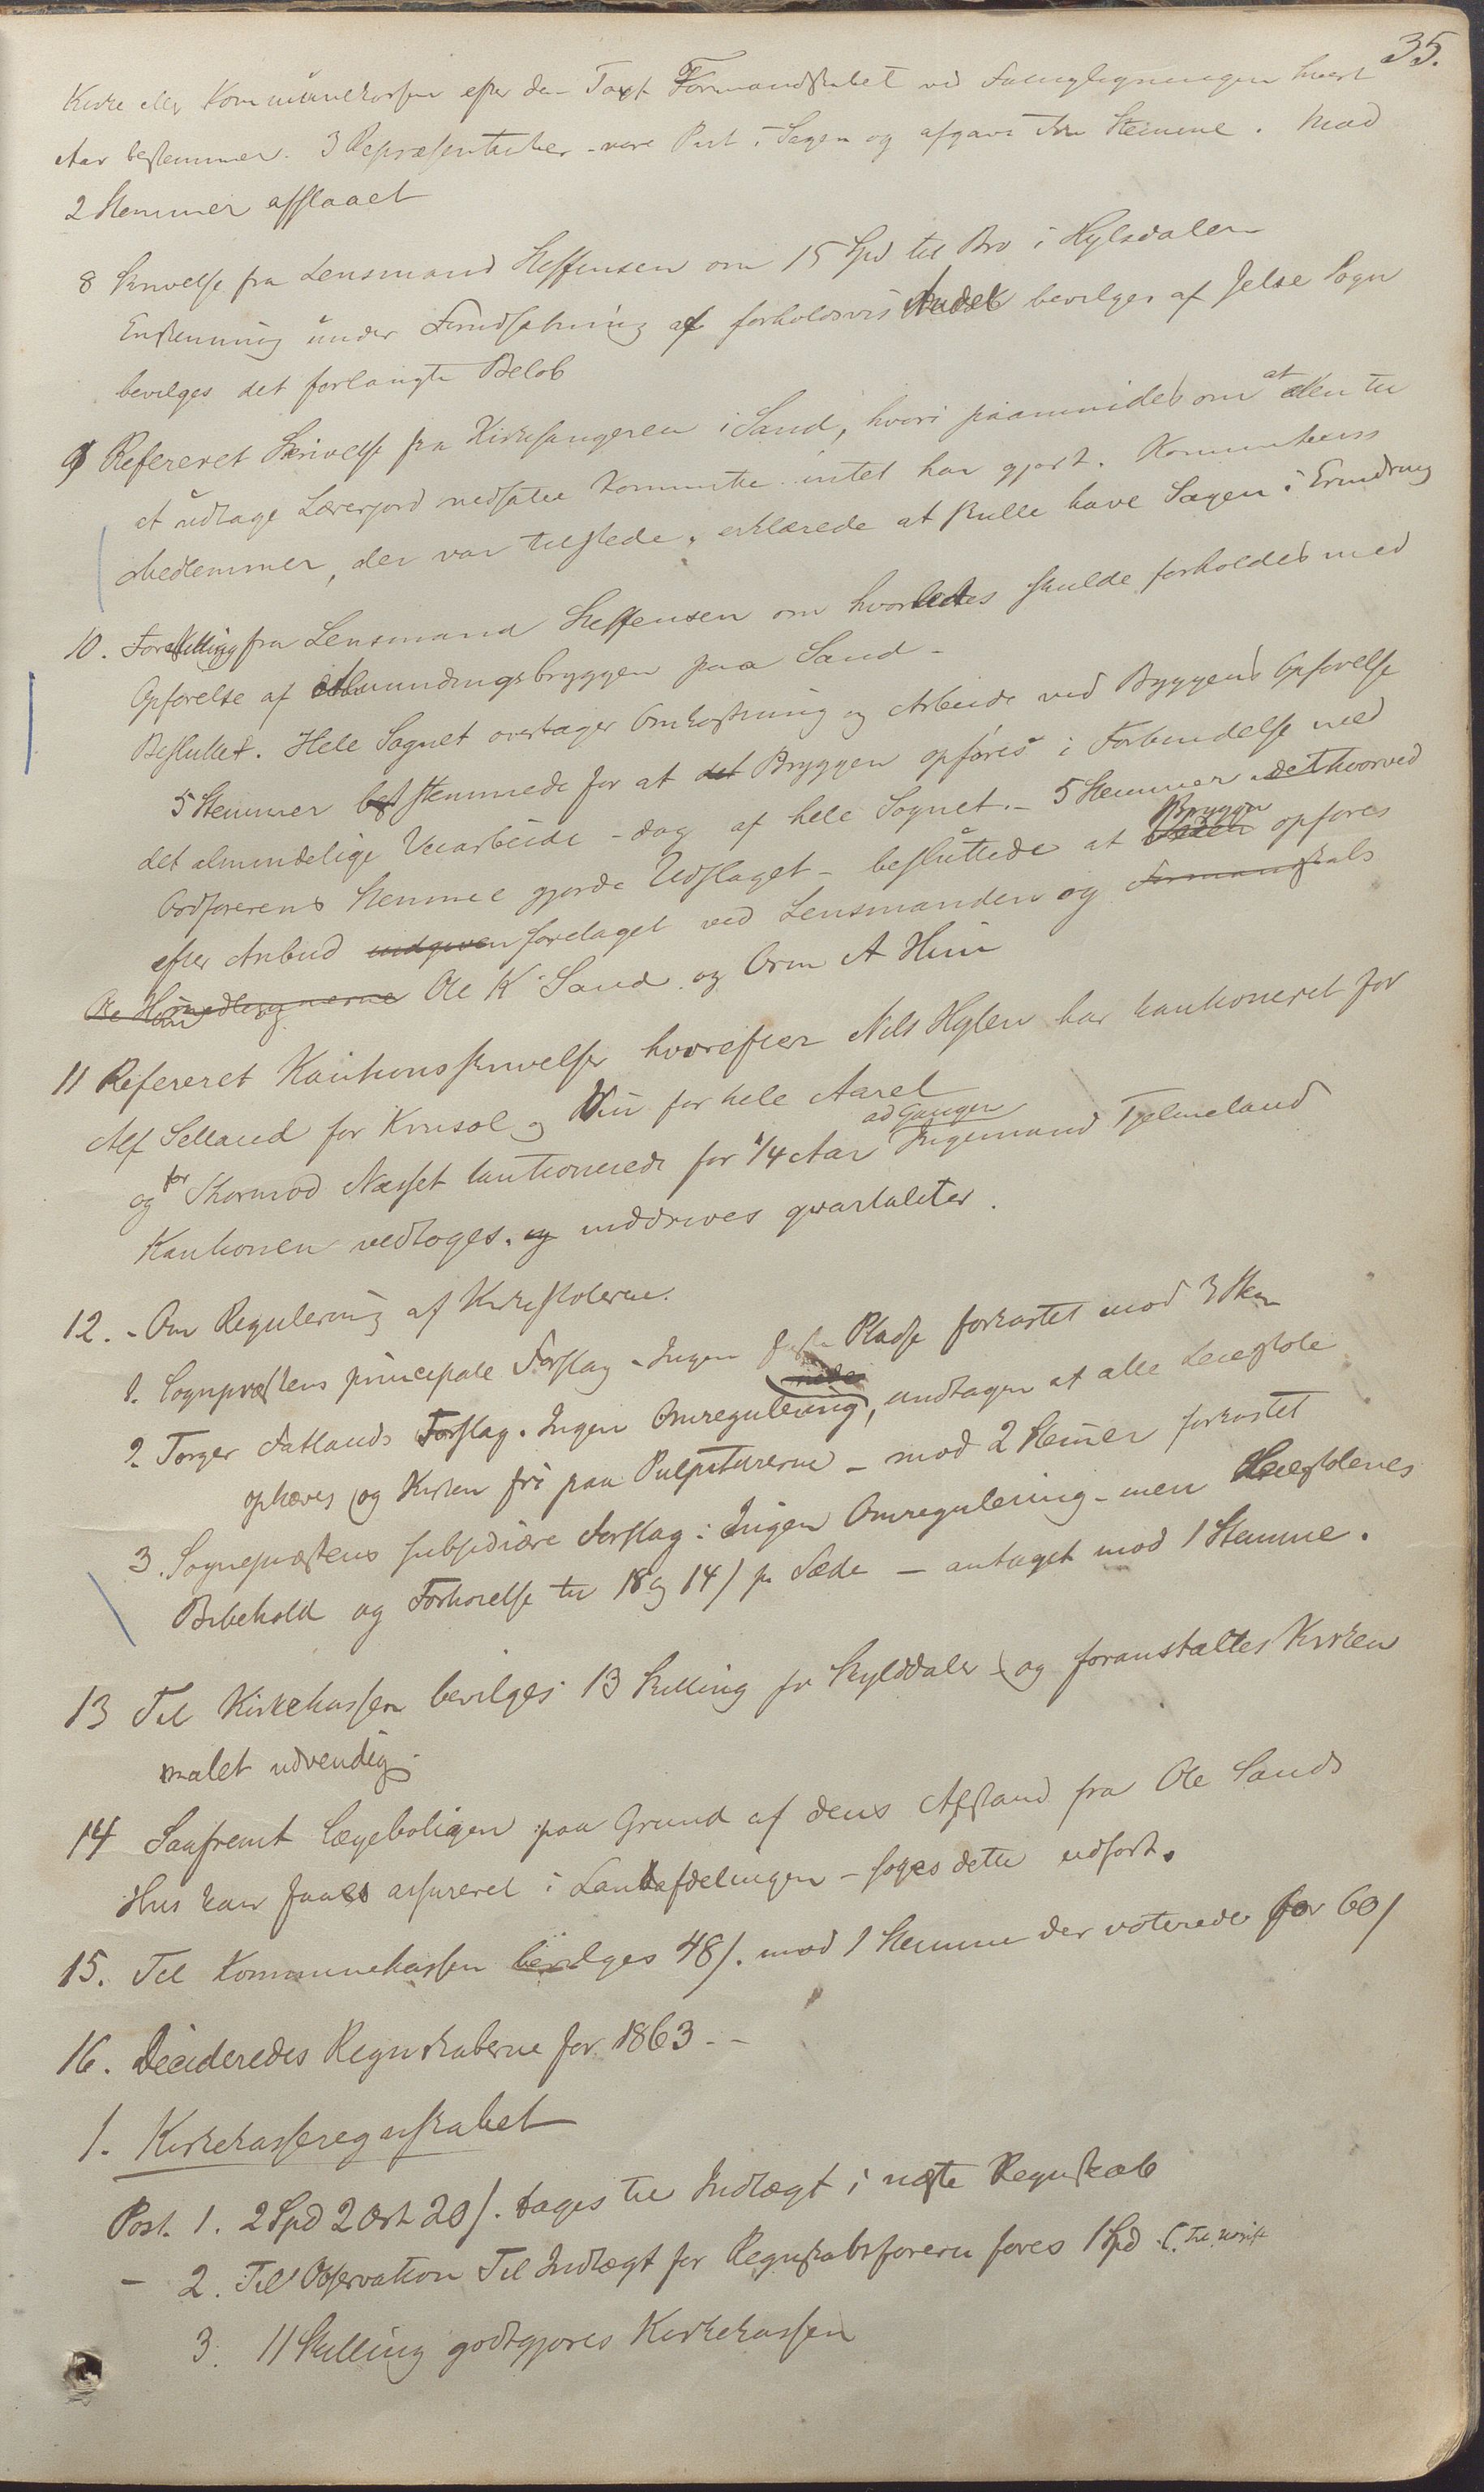 35.
Kirke eller Kommunekassen efter den Taxt Formandskabet ved Fattigligningen hvert
Aar bestemmer. 3 Repræsentanter vare Part i Sagen og afgave ikke Stemme. Mod
2 Stemmer afslaaet
8 Skrivelse fra Lensmand Steffensen om 15 Spd til Bro i Hylsdalen
Enstemmig under Forudsætning af forholdsvis Andel bevilges af Jelse Sogn
bevilges det forlangte Beløb
9 Refereret Skrivelse fra Kirkesangeren i Sand, hvori paamindes om at den til
at udtage Lærerjord nedsatte Kommitte intet har gjort. Kommiteens
Medlemmer, der var tilstede, erklærede at skulle have Sagen i Erindring
10. Forestilling fra Lensmand Steffensen om hvorledes skulde forholdes med
Opførelse af Almindingsbryggen paa Sand -
Besluttet. Hele Sognet overtager Omkostning og Arbeide ved Bryggens Opførelse
5 Stemmer stemmede for at det Bryggen opføres i Forbindelse med
det almindelige Veiarbeide - dog af hele Sognet. - 5 Stemmer - det hvorved
Ordførerens Stemme gjorde Udslaget - besluttede at Bryggen opføres
efter Anbud udgiven foretaget ved Lensmanden og Formandskabs
Ole Him medlemmerne Ole K Sand og Orm A Hiim
11 Refereret Kautionsskrivelse hvorefter Nils Hylen har kautioneret for
Alf Selland for Konsol og Viin for hele Aaret
og for Thormod Næsset kautionerede for 1/4 Aar ad Gangen Ingemund Tjelmeland
Kautionen vedtoges. og inddrives qvartaliter.
12. - Om Regulering af Kirkestolerne.
1. Sognepræstens principale Forslag - Ingen faste Pladse forkastet mod 3 Stem
2. Torger Fatlands Forslag. Ingen Omregulering, undtagen at alle Leiestole
ophæves og Kirken fri paa Pulpiturerne - mod 2 Stemer forkastet
3. Sognepræstens subsidiære Forslag: Ingen Omregulering - men Leiestolenes
Bibehold og Forhøielse til 18 og 14 ſ pr Sæde - antaget mod 1 Stemme.
13 Til Kirkekassen bevilges 13 Skilling pr Skylddaler - og foranstaltes Kirken
malet udvendig.
14 Saafremt Lægeboligen paa Grund af dens Afstand fra Ole Sands
Hus kan faaes assureret i Landafdelingen - søges dette udført.
15. Til Kommunekassen bevilges 48 ſ. mod 1 Stemme der voterede for 60 ſ
16. Decideredes Regnskaberne for 1863 - -
1. Kirkekasseregnskabet
Post. 1. 2 Spd 2 Ort 20 ſ. tages til Indtægt i næste Regnskab
- 2. Til Observation Til Indtægt for Regnskabsføreren føres 1 Spd
3. 11 Skilling godtgjøres Kirkekassen